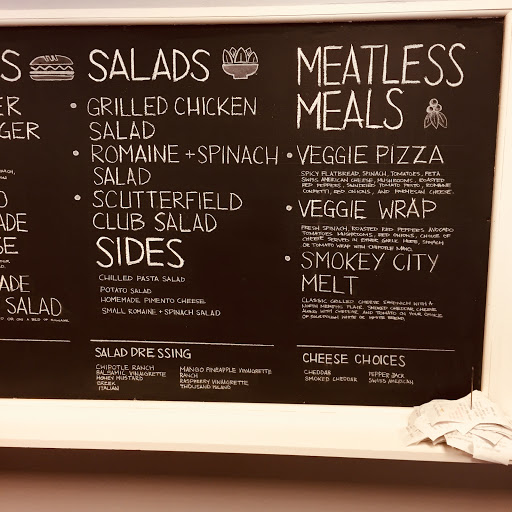 S
ER
GER
O
ADE
SE
ADE
SALAD
SALADS
• GRILLED CHICKEN
SALAD
• ROMAINE + SPINACH
SALAD
• SCUTTERFIELD
CLUB SALAD
SIDES
CHILLED PASTA SALAD
POTATO SALAD
HOMEMADE PIMENTO CHEESE
SMALL ROMAINE + SPINACH SALAD
SALAD DRESSING
CHIPOTLE RANCH
BALSAMIC VINAIGRETTE
HONEY MUSTARD
GREEK
ITALIAN
MANGO PINEAPPLE VINAIGRETTE
RANCH
RASPBERRY VINAIGRETTE
THOUSAND ISLAND
MEATLESS
MEALS
• VEGGIE PIZZA
SPICY FLATBREAD, SPINACH, TOMATOES, FETA
SWISS AMERICAN CHEESE, MUSHROOMS, ROASTED
RED PEPPERS, SUNDRIED TOMATO PESTO, ROMAINE
CONFETTI, RED ONIONS, AND PARMESAN CHEESE.
• VEGGIE WRAP
FRESH SPINACH, ROASTED RED PEPPERS AVOCADO
TOMATOES MUSHROOMS, RED ONIONS, CHOICE OF
CHEESE SERVED IN EITHER GARLIC HERB, SPINACH
OR TOMATO WRAP WITH CHIPOTLE MAYO.
• SMOKEY CITY
MELT
CLASSIC GRILLED CHEESE SANDWICH WITH A
NORTH MEMPHIS FLAIR. SMOKED CHEDDAR CHEESE
ALONG WITH CHEDDAR AND TOMATO ON YOUR CHOICE
OF SOURDOUGH WHITE OR WHEAT BREAD.
CHEESE CHOICES
CHEDDAR
SMOKED CHEDDAR
PEPPER JACK
SWISS AMERICAN